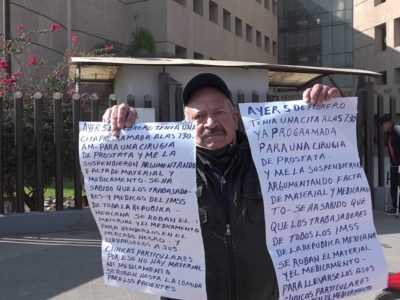 AYER 5 DE FEBRERO TENIA UNA
CITA PROGRAMADA A LAS 7 30
AM- PARA UNA CIRUGIA
DE PROSTATA Y ME LA
SUSPENDIERON ARGUMENTANDO
FALTA DE MATERIAL Y
MEDICAMENTO - SE HA
SABIDO QUE LOS TRABAJADO
RES- Y MEDICOS DEL IMSS
DE TODA LA REPUBLICA
MEXICANA SE ROBAN EL
MATERIAL Y MEDICAMENTO
PARA VENDERLOS EN EL
MERCADO NEGRO - Y
LLEVARSELOS A SUS
CLINICAS PARTICULARES
POR ESO NO HAY MATERIAL
NI MEDICAMENTO
SE ROBAN HASTA LA COMIDA
PARA LOS PACIENTES
AYER 5 DE FEBRERO
TENIA UNA CITA A LAS 7 30
YA PROGRAMADA
PARA UNA CIRUGIA
DE PROSTATA -
Y ME LA SUSPENDIERON
ARGUMENTANDO FALTA
DE MATERIAL Y MEDICAME
NTO - SE HA SABIDO QUE
QUE LOS TRABAJADORES
DE TODOS LOS IMSS
DE LA REPUBLICA MEXICANA
SE ROBAN EL MATERIAL
Y EL MEDICAMENTO -
PARA LLEVARSELOS ASUS
CLINICOS PARTICULARES